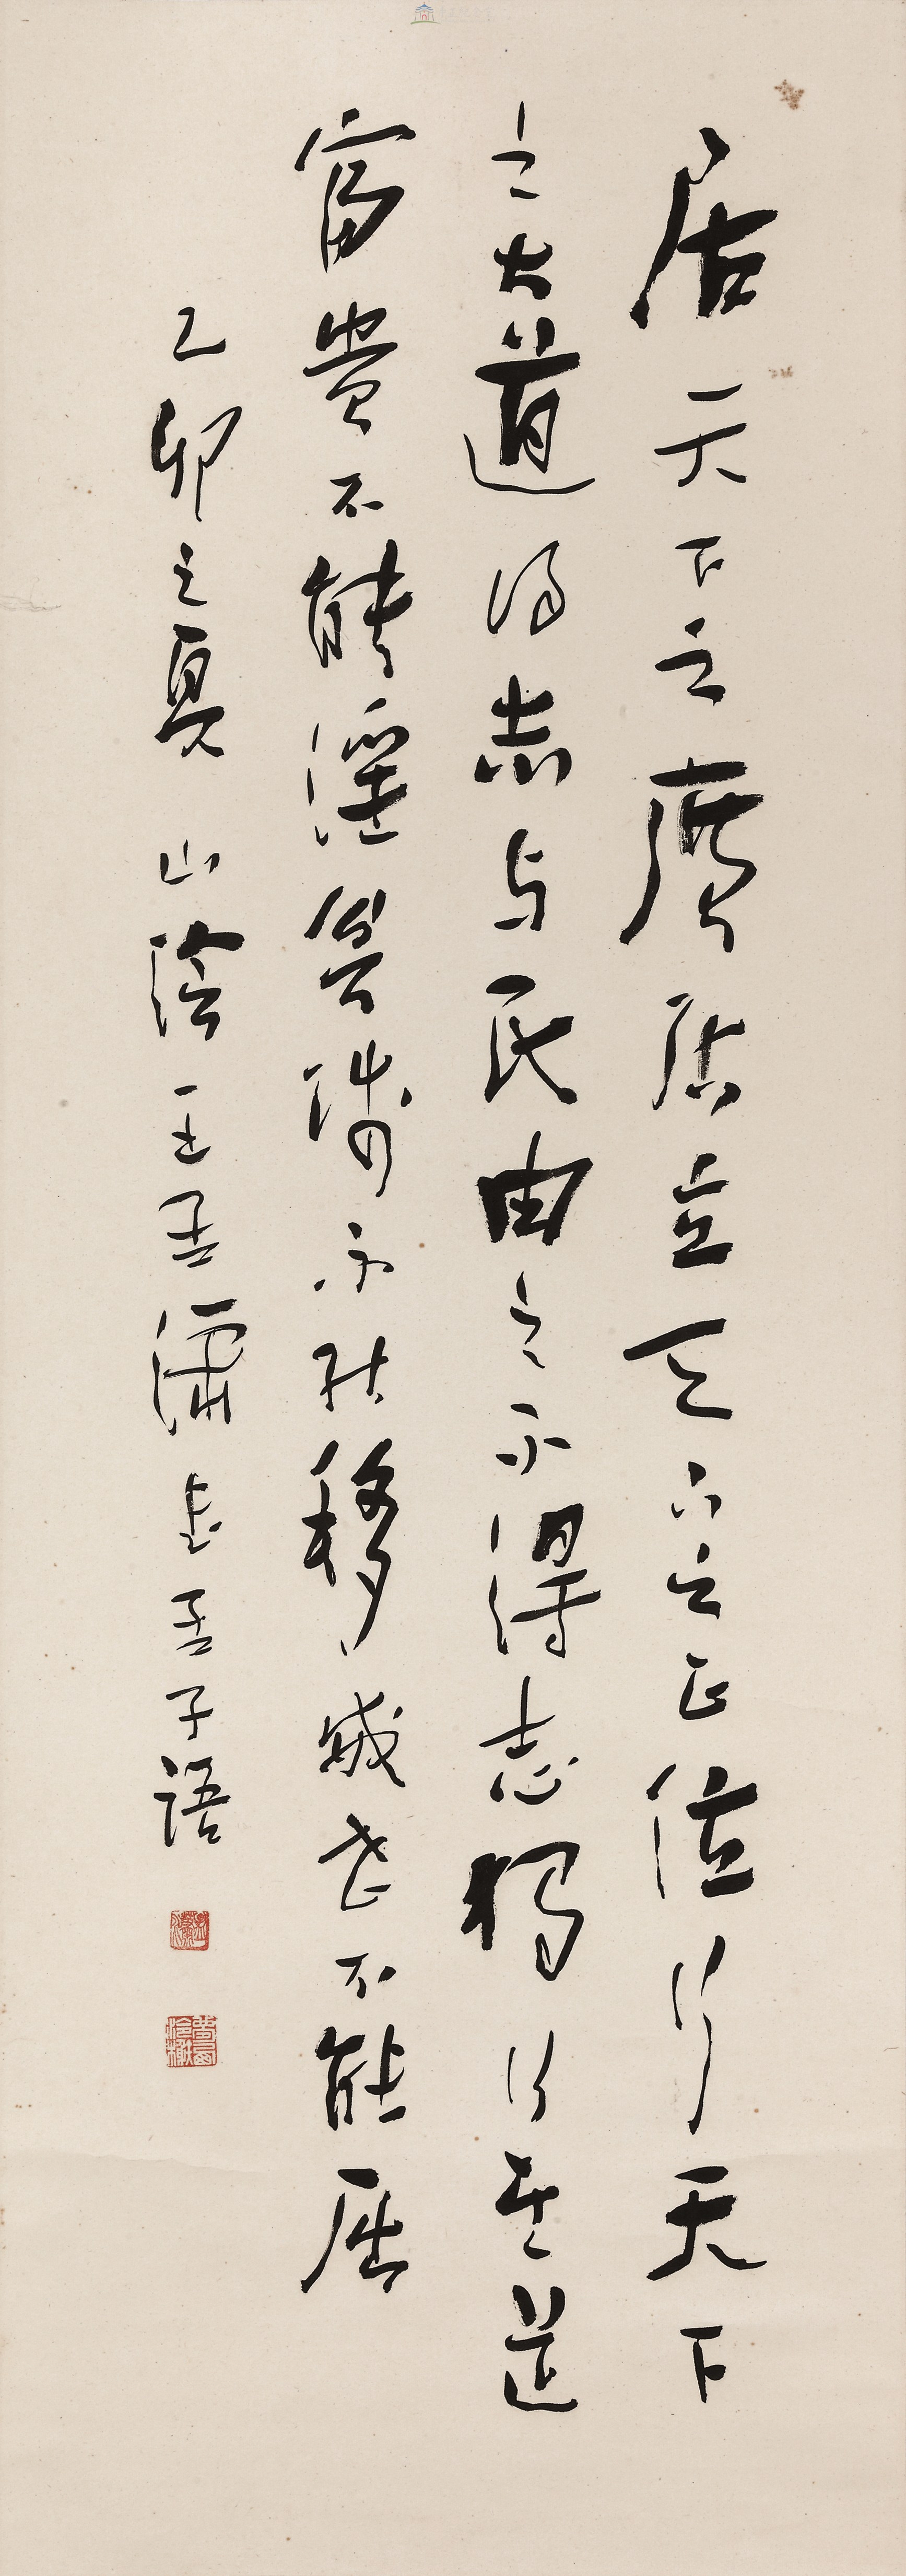 居天下之廣居立天下之正位行天下
之大道得志与民由之不得志獨行其道
富貴不能淫貧賤不能移威武不能屈
乙卯之夏 山陰王𨖚瀟书孟子語